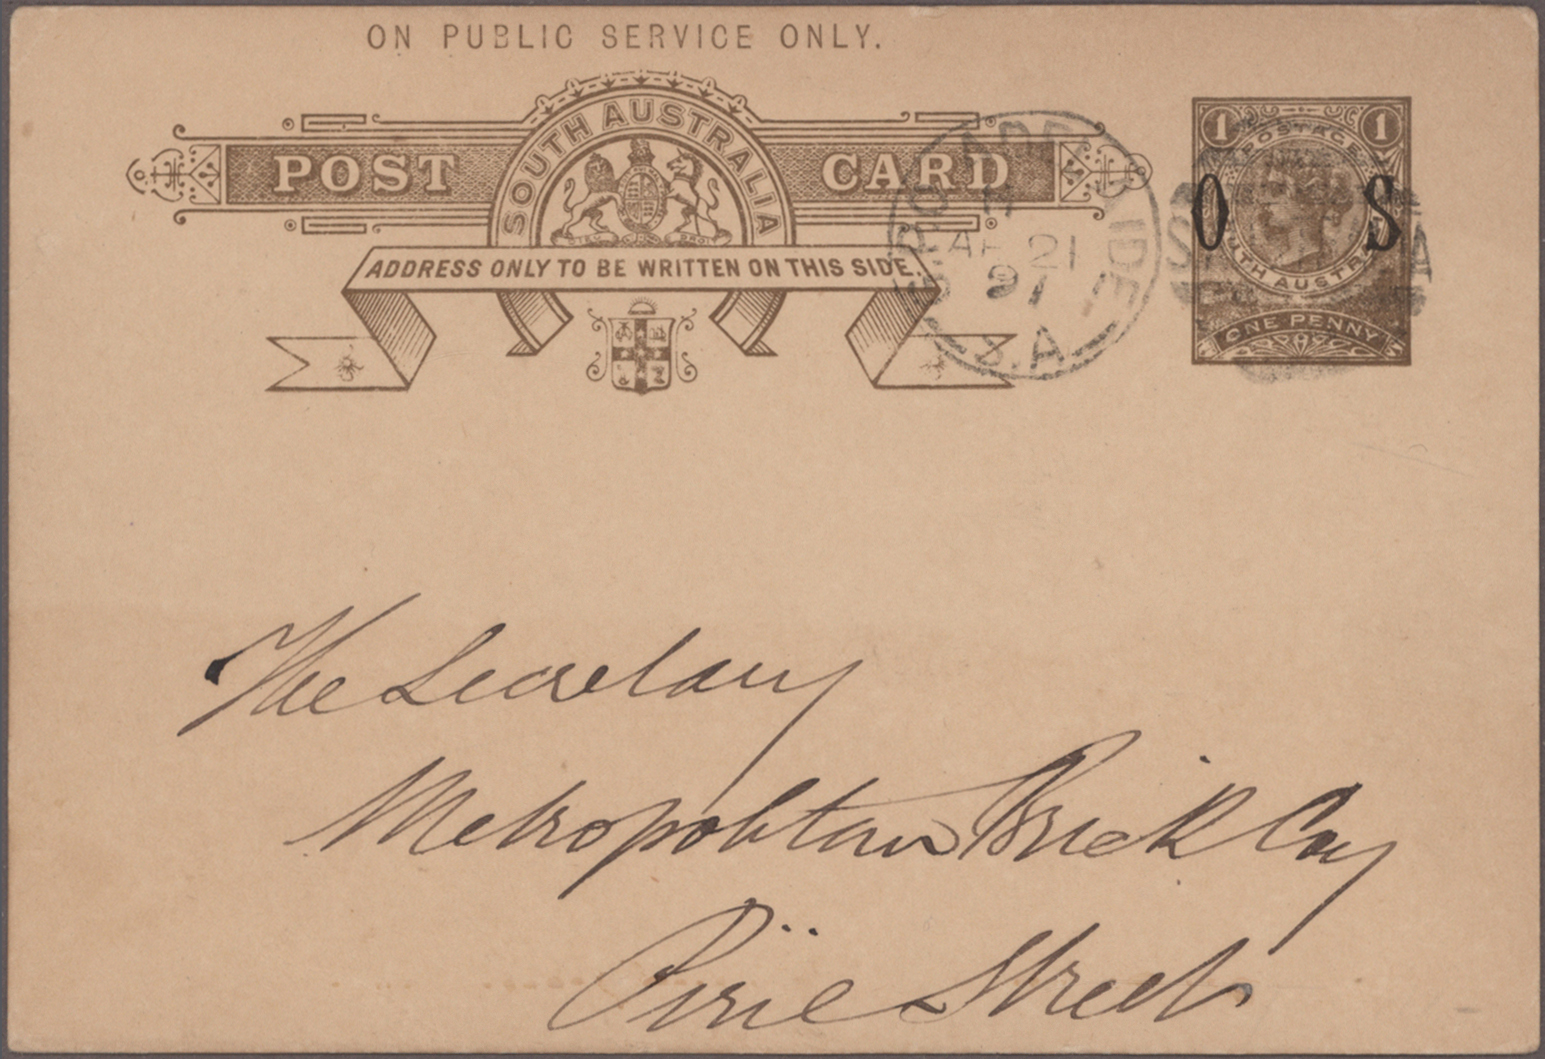 ON PUBLIC SERVICE ONLY.
SOUTH AUSTRALIA
POST CARD
ADDRESS ONLY TO BE WRITTEN ON THIS SIDE.
G.P.O. ADELAIDE
AP 21
91
S.A
1 POSTAGE 1
O S
SOUTH AUSTRALIA
ONE PENNY
The Secretary
Metropolitan Brick Coy
Pirie Street